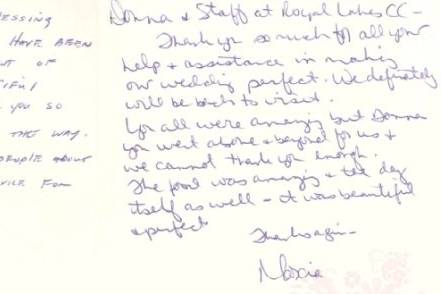 ESSING
HAVE BEEN
OF
YOU SO
THE WAY.
PEOPLE ABOUT
FOR
Donna & Staff at Royal Lakes CC -
Thank you so much for all your
help & assistance in making
our wedding perfect. We definately
will be back to visit.
You all were amazing but Donna
you went above & beyond for us &
we cannot thank you enough.
The food was amazing & the day
itself as well - it was beautiful
& perfect
Thanks again -